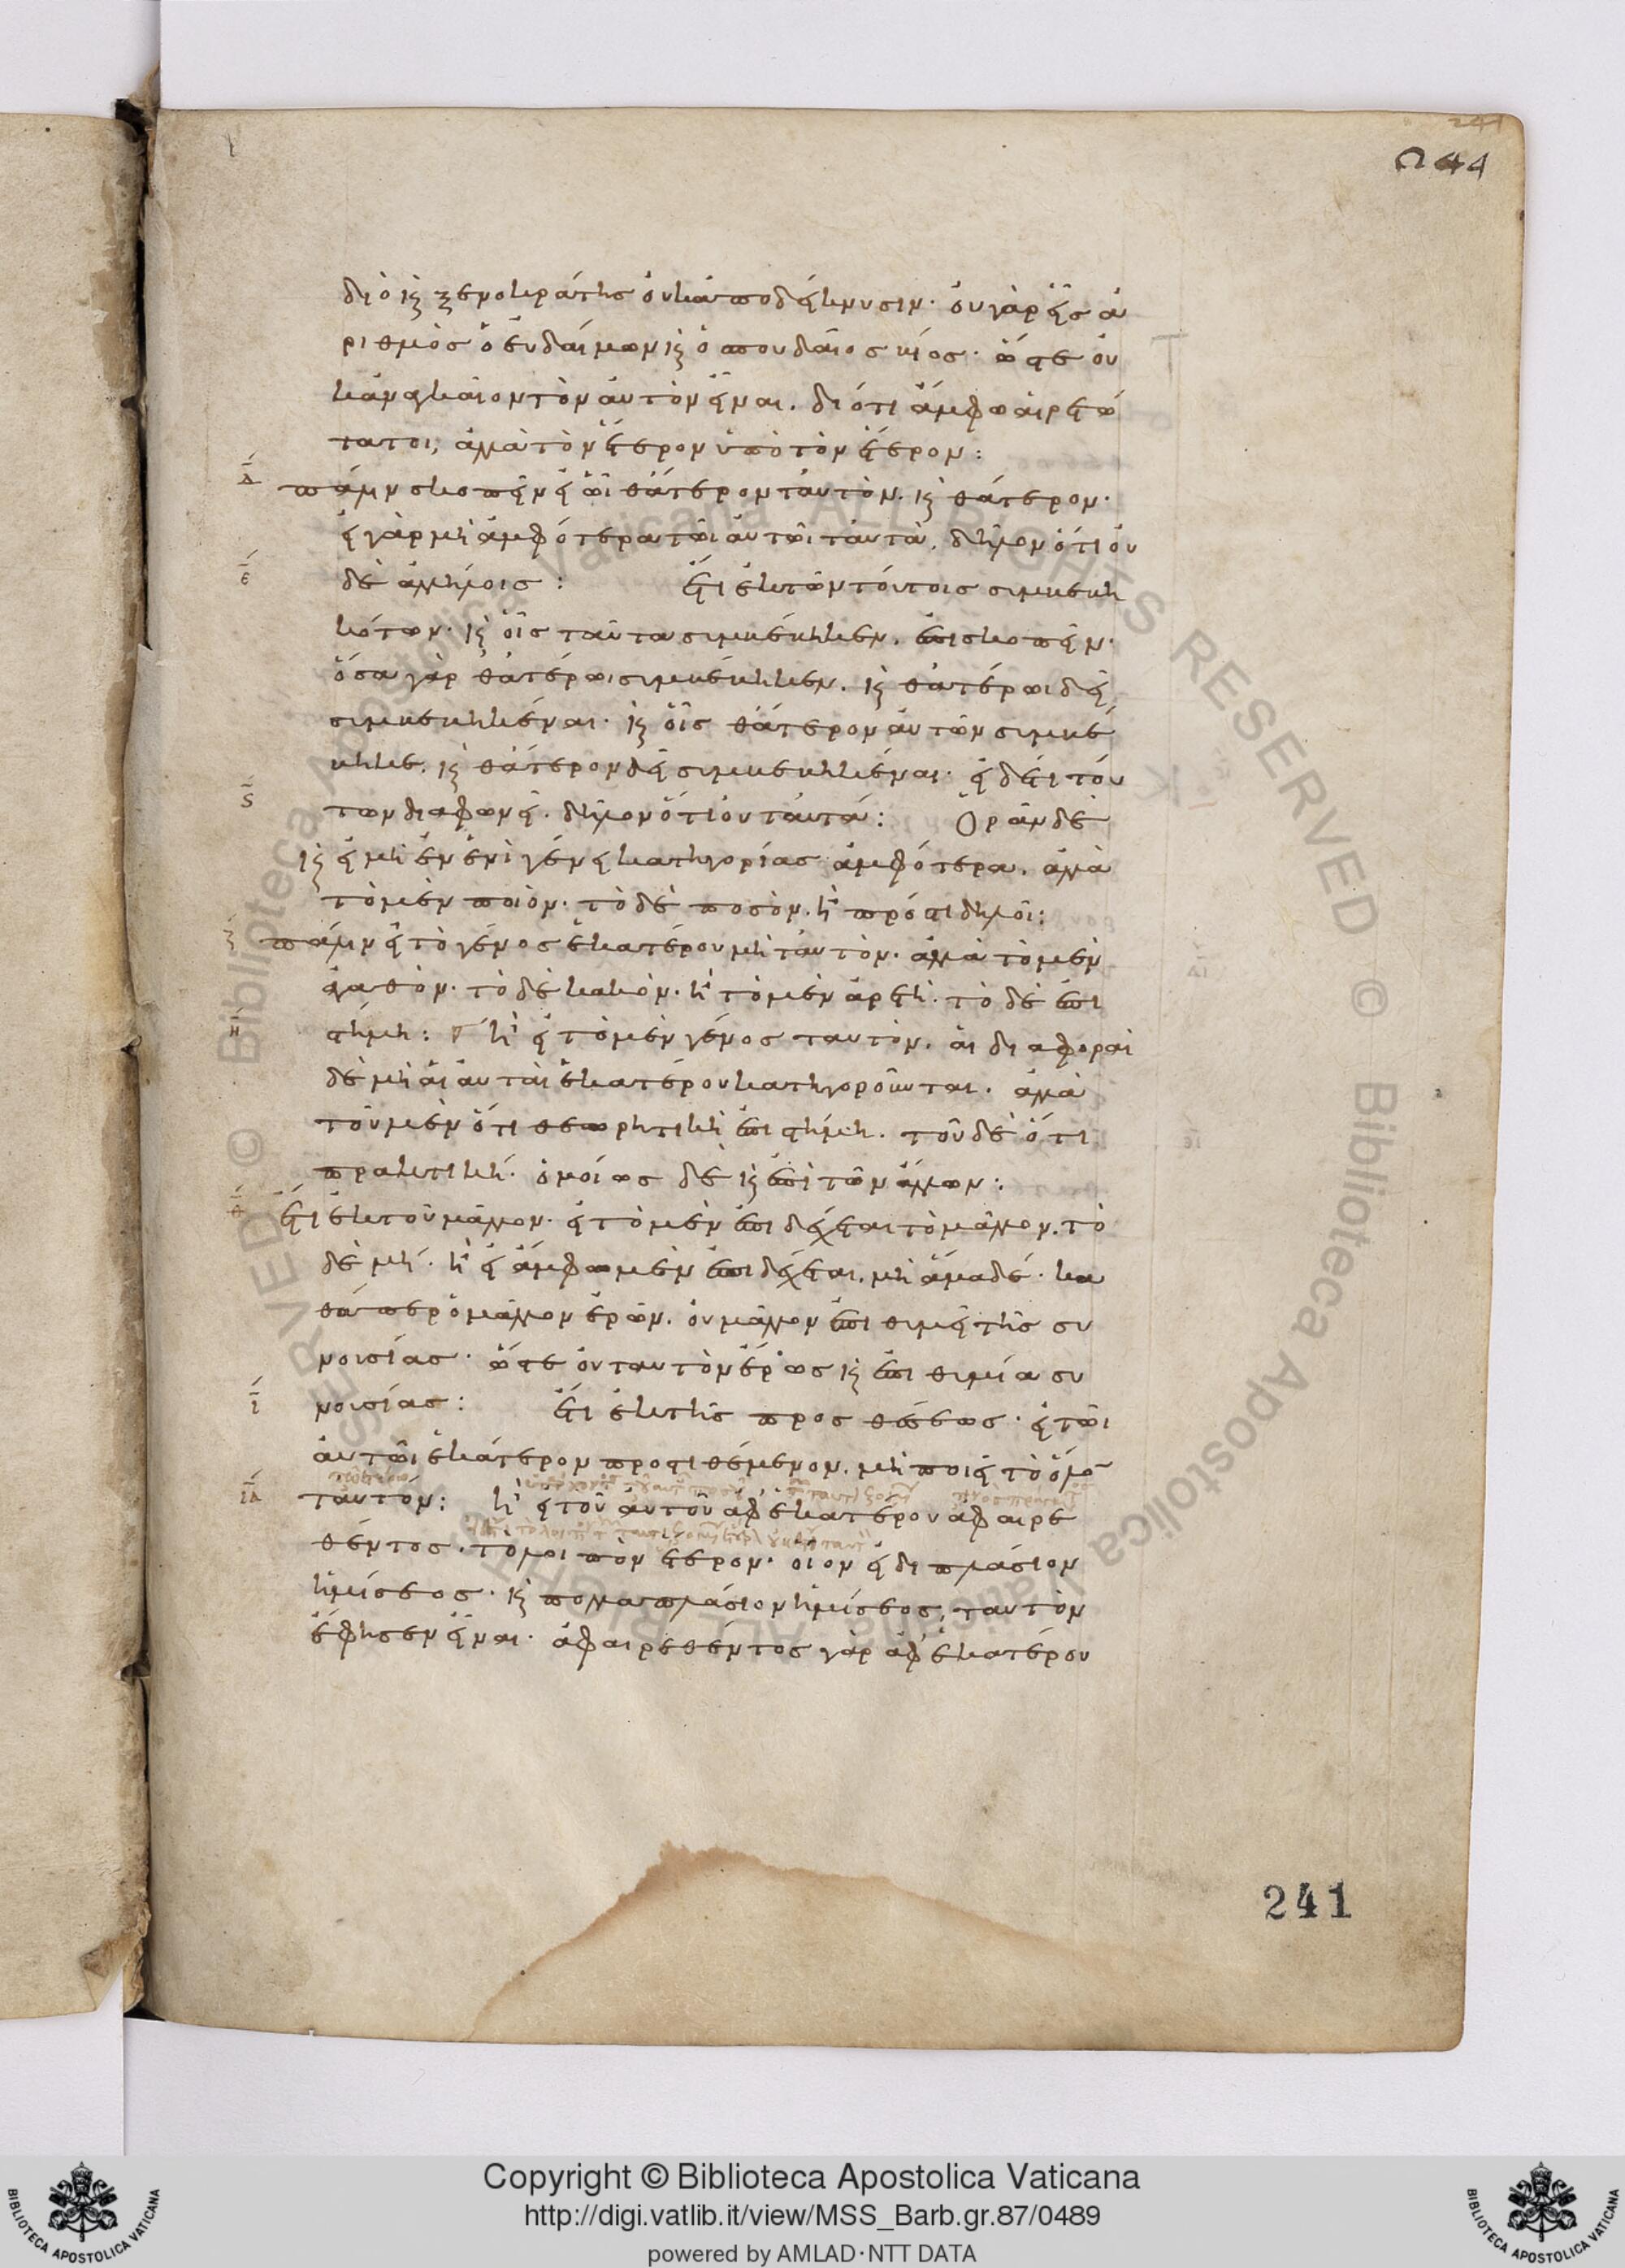 241
Ω 44
διὸ καὶ ξενοκράτης οὐκ ἀποδείκνυσιν· οὐ γὰρ εἷς ἀ
ριθμὸς ὁ εὐδαίμων καὶ ὁ σπουδαῖος βίος· ὥστε οὐ
κ ἀναγκαῖον τὸν αὐτὸν εἶναι. διότι ἄμφω αἱρετώ
τατοι, ἀλλὰ τὸν ἕτερον ὑπὸ τὸν ἕτερον:
Δ πάλιν σκοπεῖν εἰ ὧι θάτερον ταὐτὸν. καὶ θάτερον·
εἰ γὰρ μὴ ἀμφότερα τῶι αὐτῶι ταὐτὰ, δῆλον ὅτι οὐ
Ε δὲ ἀλλήλοις: ἔτι ἐκ τῶν τούτοις συμβεβη
κότων· καὶ οἷς ταῦτα συμβέβηκεν, ἐπισκοπεῖν·
ὅσα γὰρ θατέρωι συμβέβηκεν, καὶ θατέρωι δεῖ
συμβεβηκέναι· καὶ οἷς θάτερον αὐτῶν συμβέ
βηκε, καὶ θάτερον δεῖ συμβεβηκέναι· εἰ δέ τι τού
ς των διαφωνεῖ. δῆλον ὅτι οὐ ταὐτά: Ὁρᾶν δὲ
καὶ εἰ μὴ ἐν ἑνὶ γένει κατηγορίας ἀμφότερα, ἀλλὰ
τὸ μὲν ποιόν· τὸ δὲ ποσὸν. ἢ πρός τι δηλοῖ:
Ζ πάλιν εἰ τὸ γένος ἑκατέρου μὴ ταὐτὸν· ἀλλὰ τὸ μὲν
ἀγαθόν· τὸ δὲ κακόν· ἢ τὸ μὲν ἀρετὴ· τὸ δὲ ἐπι
Η στήμη: ἢ εἰ τὸ μὲν γένος ταυτὸν, αἱ διαφοραὶ
δὲ μὴ αἱ αὐταὶ ἑκατέρου κατηγοροῦνται. ἀλλὰ
τοῦ μὲν ὅτι θεωρητικὴ ἐπιστήμη. τοῦ δὲ ὅτι
πρακτική· ὁμοίως δὲ καὶ ἐπὶ τῶν ἄλλων:
Θ ἔτι ἐκ τοῦ μᾶλλον· εἰ τὸ μὲν ἐπιδέχεται τὸ μᾶλλον, τὸ
δὲ μή· ἢ εἰ ἄμφω μὲν ἐπιδέχεται, μὴ ἅμα δέ· κα
θάπερ ὁ μᾶλλον ἐρῶν, οὐ μᾶλλον ἐπιθυμεῖ τῆς συ
νουσίας· ὥστε οὐ ταυτὸν ἔρως καὶ ἐπιθυμία συ
Ι νουσίας: ἔτι ἐκ τῆς προσθέσεως· εἰ τῶι
αὐτῶι ἑκάτερον προστιθέμενον, μὴ ποιεῖ τὸ ὅλον
ΙΑ ταὐτόν: ἢ εἰ τοῦ αὐτοῦ ἀφ' ἑκατέρου ἀφαιρε
θέντος, τὸ λοιπὸν ἕτερον· οἷον εἰ διπλάσιον
ἡμίσεος· καὶ πολλαπλάσιον ἡμίσεος, ταυτὸν
ἔφησεν εἶναι· ἀφαιρεθέντος γὰρ ἀφ' ἑκατέρου
241
© Biblioteca Apostolica Vaticana ALL RIGHTS RESERVED © Biblioteca Apostolica Vaticana ALL RIGHTS RESERVED
BIBLIOTECA APOSTOLICA VATICANA
Copyright © Biblioteca Apostolica Vaticana
http://digi.vatlib.it/view/MSS_Barb.gr.87/0489
powered by AMLAD·NTT DATA
BIBLIOTECA APOSTOLICA VATICANA